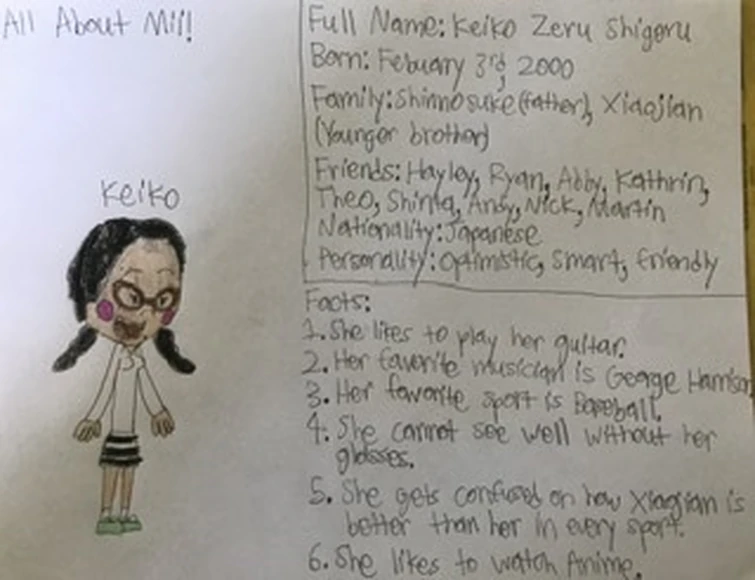 All About Mii!
Keiko
Full Name: Keiko Zeru Shigeru
Born: Febuary 3rd, 2000
Family: Shinnosuke (father), Xiaojian
(Younger brother)
Friends: Hayley, Ryan, Abby, Kathrin,
Theo, Shinta, Andy, Nick, Martin
Nationality: Japanese
Personality: Optimistic, Smart, friendly
Facts:
1. She likes to play her guitar.
2. Her favorite musician is George Harrison
3. Her favorite sport is Baseball.
4. She cannot see well without her
glasses.
5. She gets confused on how Xiaojian is
better than her in every sport.
6. She likes to watch Anime.